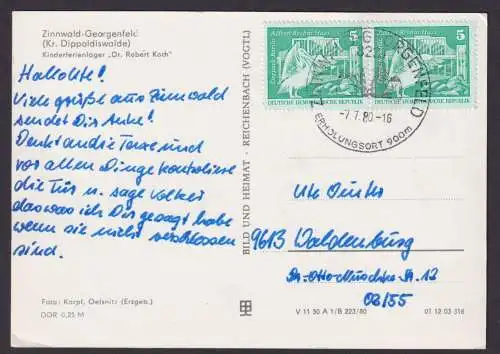 Zinnwald-Georgenfeld
(Kr. Dippoldiswalde)
Kinderferienlager „Dr. Robert Koch"
Hallo Ute!
Viele Grüße aus Zinnwald
sendet Dir Anke!
Denkt an die Tasse und
vor allen Dinge kontroliere
die Tür u. sage Volker
das was ich Dir gesagt habe
wenn sie nicht verschlossen
sind.
Foto: Karpf, Oelsnitz (Erzgeb.)
DDR 0,25 M
BILD UND HEIMAT · REICHENBACH (VOGTL)
Alfred-Brehm-Haus
Tierpark Berlin
5
DEUTSCHE DEMOKRATISCHE REPUBLIK
Alfred-Brehm-Haus
5
DEUTSCHE DEMOKRATISCHE REPUBLIK
ZINNWALD-GEORGENFELD
-7.7.80-16
ERHOLUNGSORT 900m
Ute
9613 Waldenburg
12
08/55
V 11 50 A 1/B 223/80
01 12 03 316